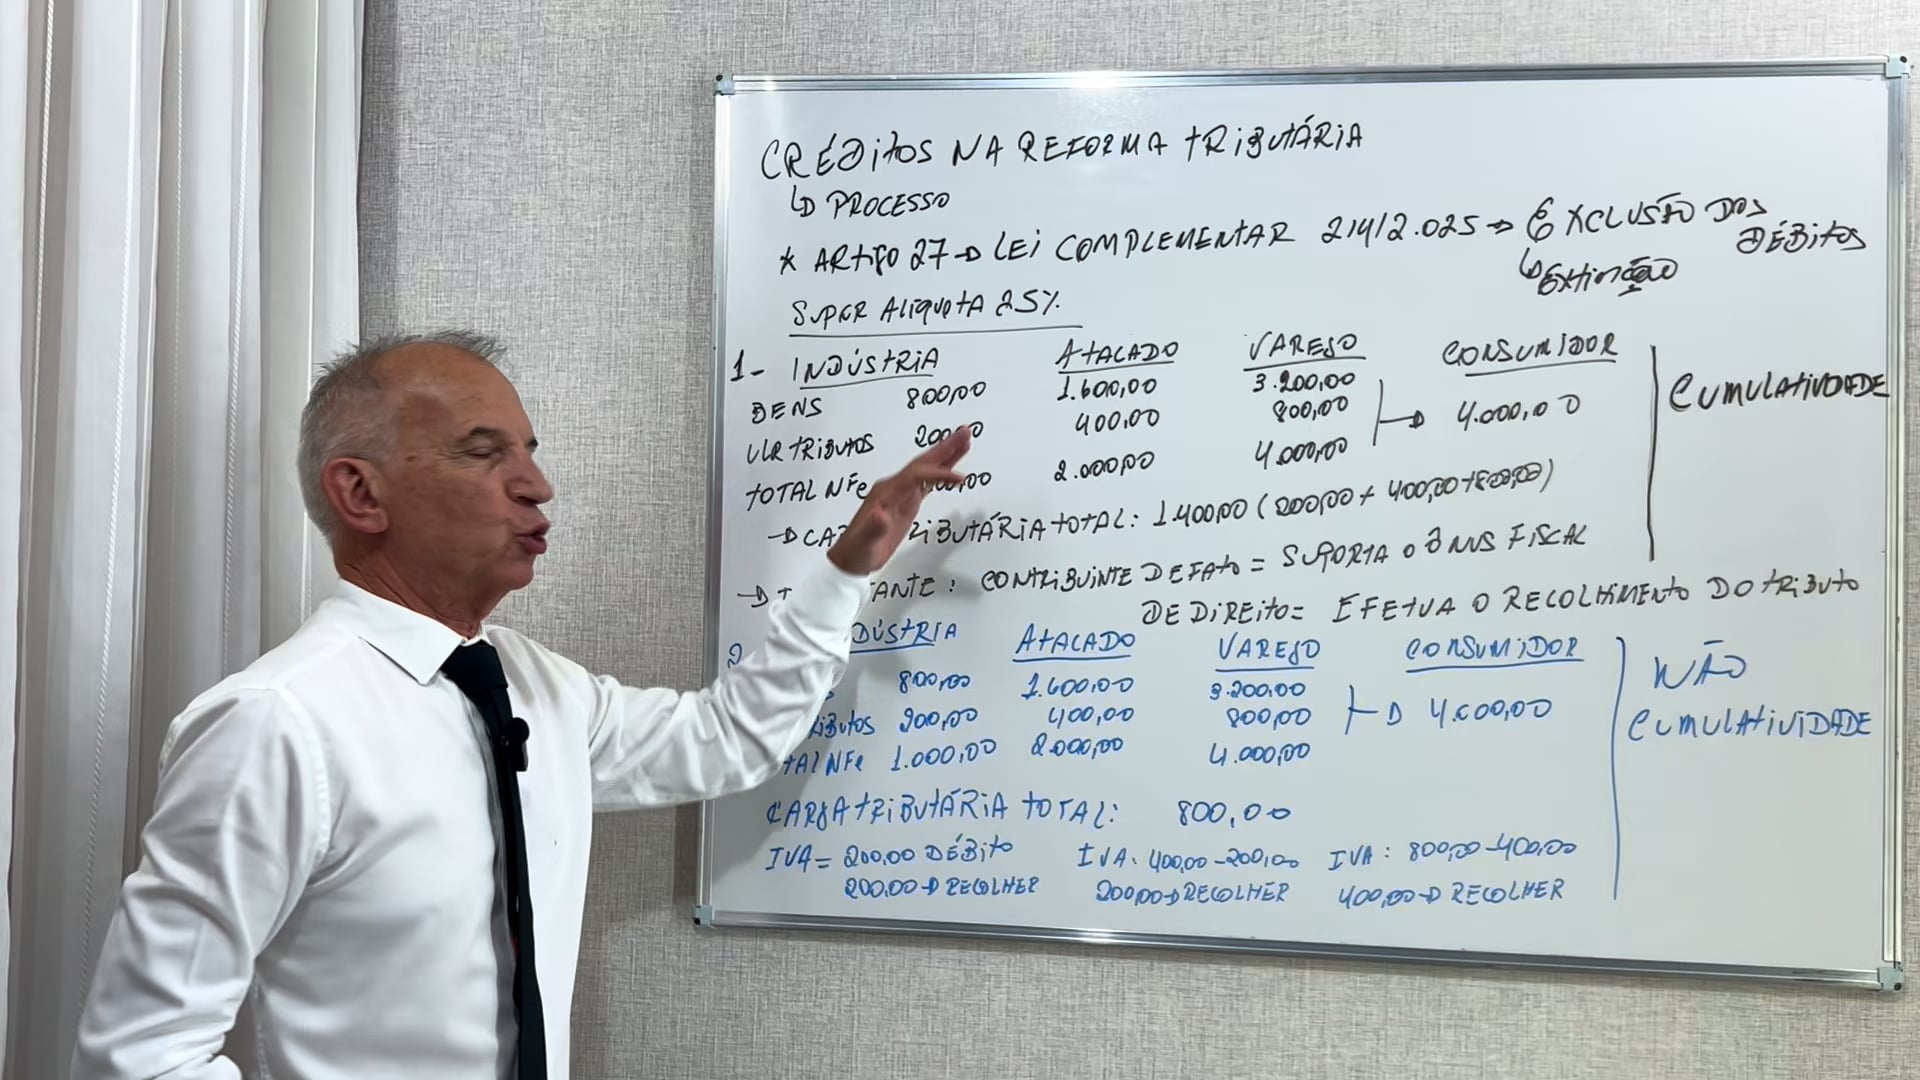 CRÉDITOS NA REFORMA TRIBUTÁRIA
↳ PROCESSO
* ARTIGO 27 → LEI COMPLEMENTAR 214/2.025 → EXCLUSÃO DOS DÉBITOS
↳ EXTINÇÃO
SUPER ALIQUOTA 25%
1- INDÚSTRIA ATACADO VAREJO CONSUMIDOR
BENS 800,00 1.600,00 3.200,00
VLR TRIBUTOS 200,00 400,00 800,00 → 4.000,00
TOTAL NFe 00,00 2.000,00 4.000,00
CUMULATIVIDADE
→ CA IBUTÁRIA TOTAL: 1.400,00 (200,00 + 400,00 + 800,00)
→ TANTE: CONTRIBUINTE DE FATO = SUPORTA O ÔNUS FISCAL
DE DIREITO = EFETUA O RECOLHIMENTO DO TRIBUTO
2 DÚSTRIA ATACADO VAREJO CONSUMIDOR
S 800,00 1.600,00 3.200,00
IBUTOS 200,00 400,00 800,00 → 4.000,00
TAL NFe 1.000,00 2.000,00 4.000,00
NÃO
CUMULATIVIDADE
CARGA TRIBUTÁRIA TOTAL: 800,00
IVA = 200,00 DÉBITO IVA: 400,00 - 200,00 IVA: 800,00 - 400,00
200,00 → RECOLHER 200,00 → RECOLHER 400,00 → RECOLHER